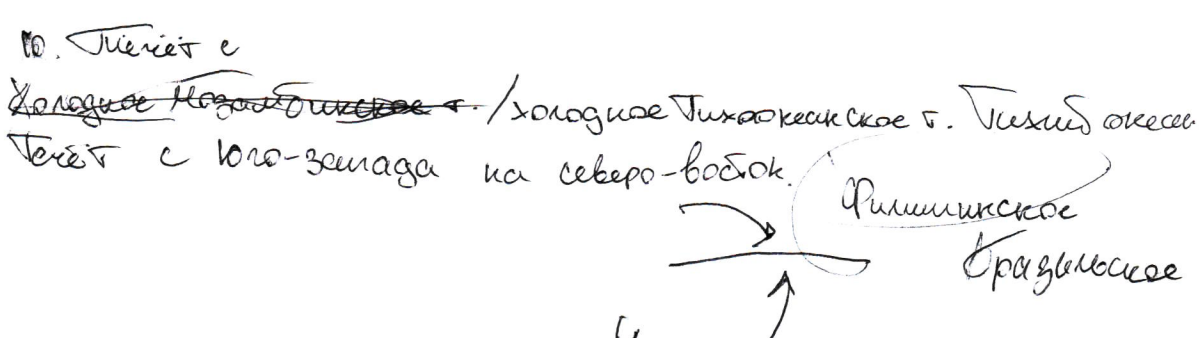 10. Течёт с
Холодное Мозамбикское т. / холодное Тихоокеанское т. Тихий океан
Течёт с юго-запада на северо-восток.
Филиппинское
Бразильское